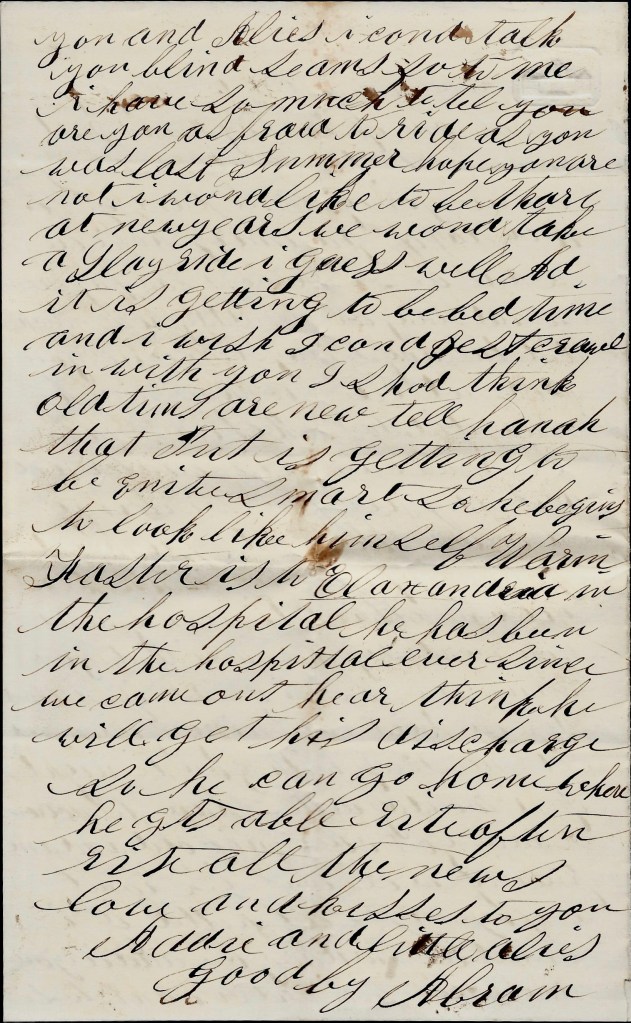 you and Alies i cond talk
you blind seams so to me
i have so much to tel you
are you as fraid to ride as you
was last Summer hope you are
not i wond like to be thare
at newyears we wond take
a Slay ride i guess well Ad
it is getting to be bed time
and i wish I cond jest crawl
in with you I shod think
old tims are new tell hanah
that Put is getting to
be quite smart so he begins
to look like himself Warin
Foster is in Elaxandria in
the hospital he has been
in the hospittal ever since
we came out hear think he
will get his discharge
so he can go home when
he gts able rite often
rite all the news
love and kisses to you
Addie and little alies
good by Abram